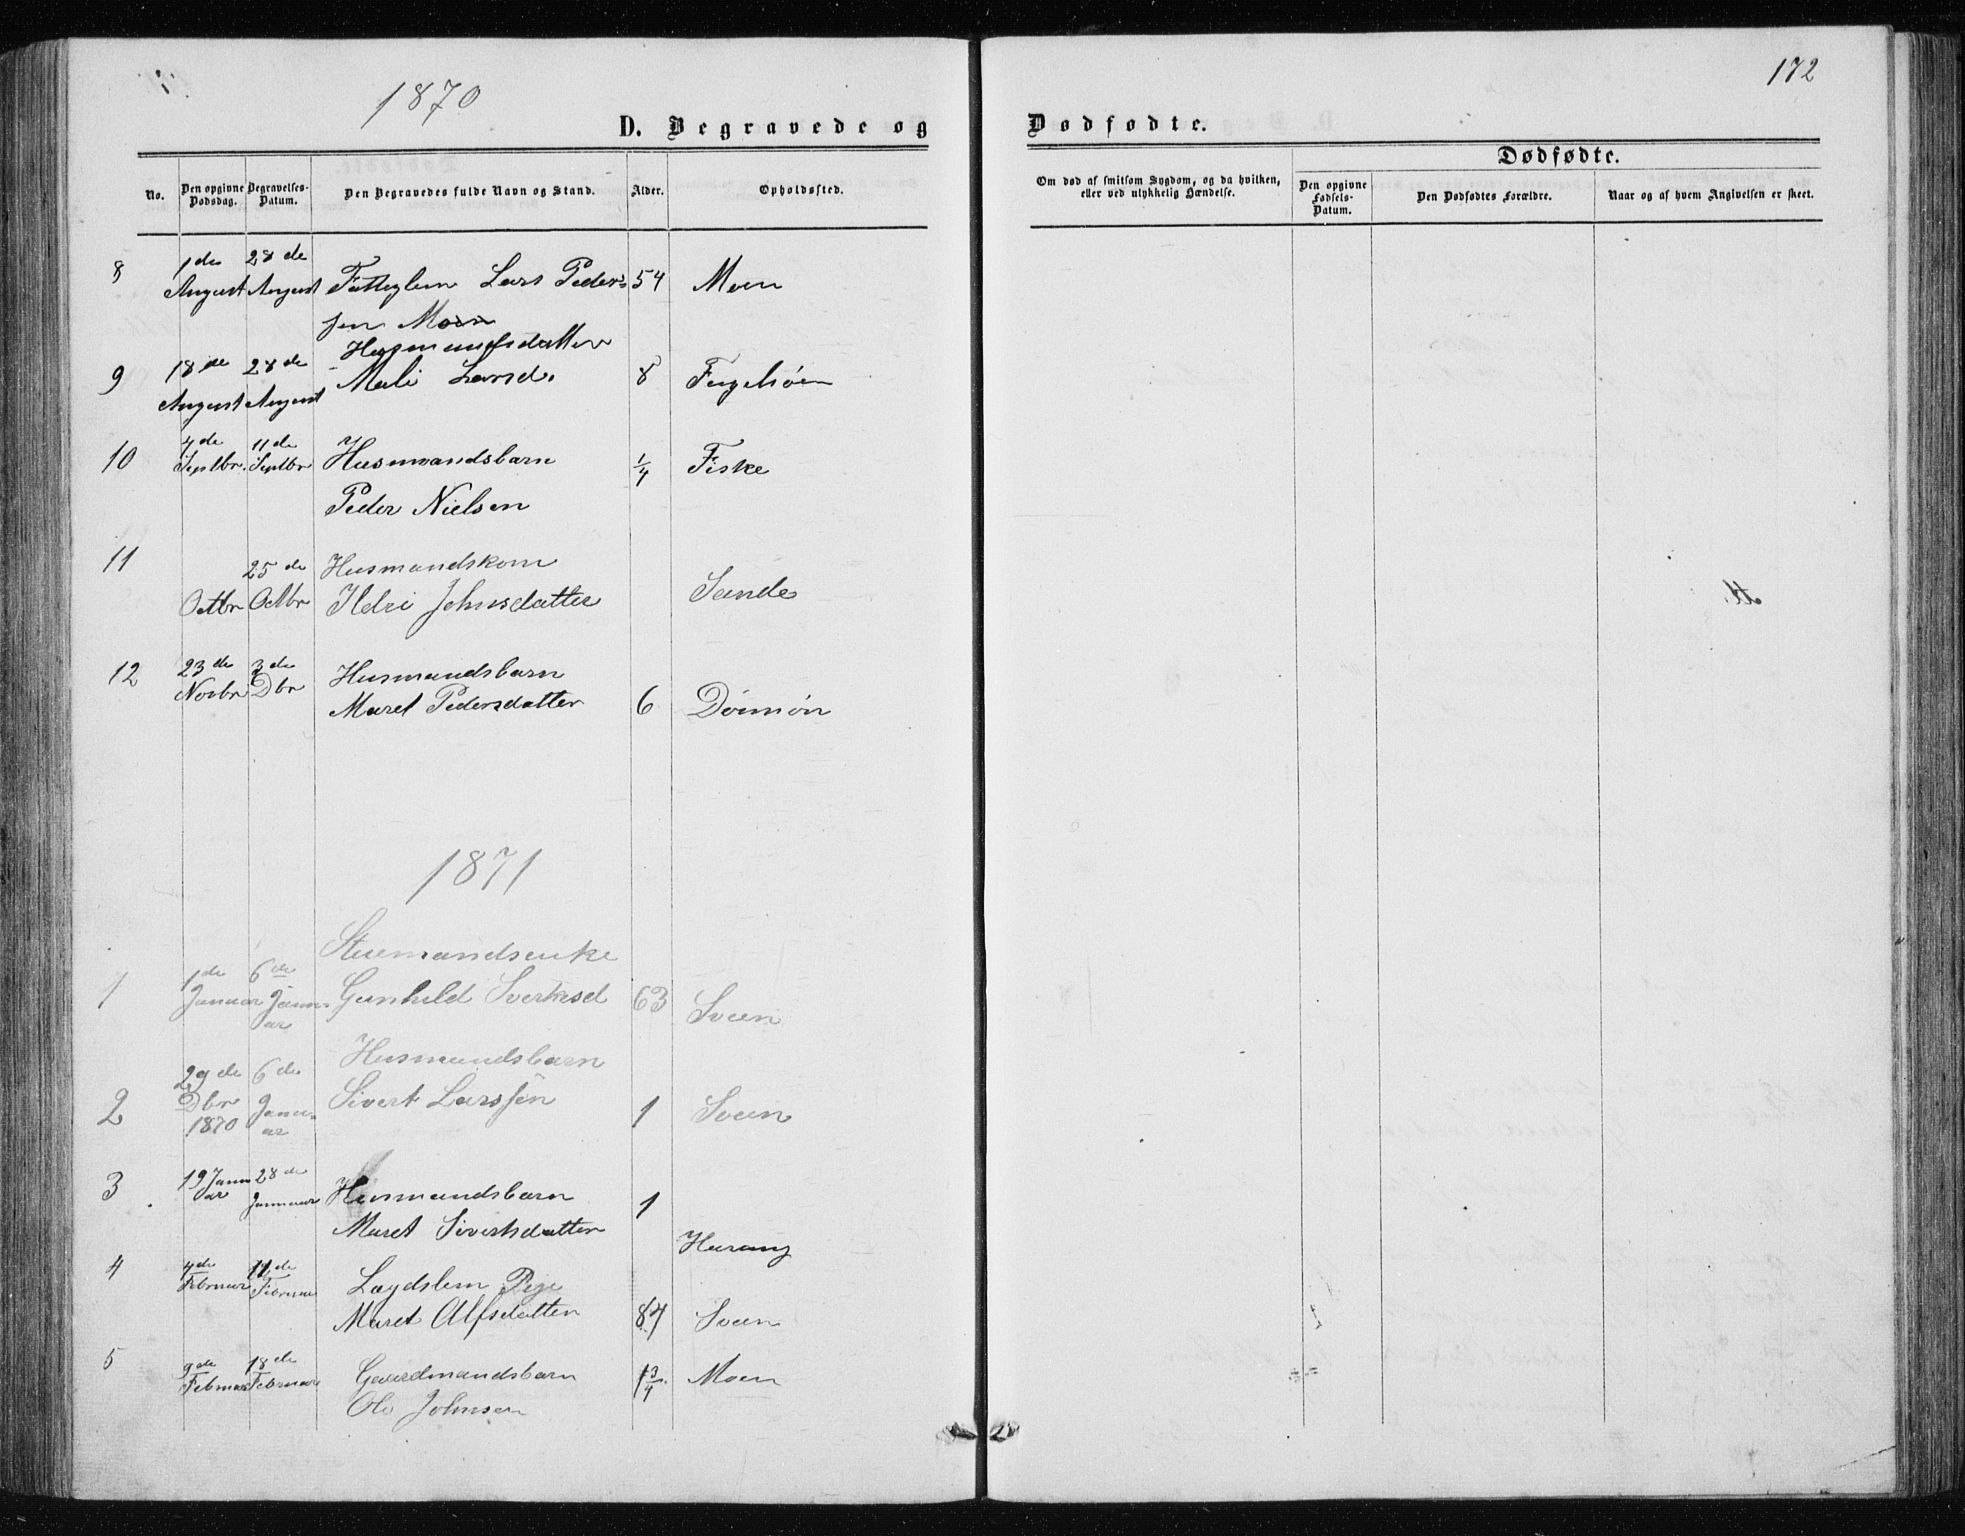 1870
172
D. Begravede og
Dødfødte.
Dødfødte.
No.
Den opgivne Dødsdag.
Begravelses-Datum.
Den Begravedes fulde Navn og Stand.
Alder.
Opholdssted.
Om død af smitsom Sygdom, og da hvilken, eller ved ulykkelig Hændelse.
Den opgivne Fødsels-Datum.
Den Dødfødtes Forældre.
Naar og af hvem Angivelsen er skeet.
8 1de August 28de August Fatteglem Lars Peder- 54 Moen
sen Moen
Husmandsdatter
9 18de August 28de August Mali Larsd. 8
10 4de Septbr. 11de Septbr Husmandsbarn 1/4 Fiske
Peder Nielsen
11 Octbr 25de Octbr Husmandskone
Ildri Johnsdatter Sande
12 23de Novbr 3de Dbr Husmandsbarn
Maret Pedersdatter 6
1871
1 1de Januar 6de Januar
Gunhild Sivertsd 63 Sveen
Husmandsbarn
2 29de Dbr 1870 6de Januar Sivert Larssen 1 Sveen
3 19 Januar 28de Januar Husmandsbarn 1
Maret Sivertsdatter Harang
4 4de Februar 11de Februar Lægdslem Pige
Maret Alfsdatter 84 Sveen
5 9de Februar 18de Februar Gaardmandsbarn 1 3/4 Moen
Ole Johnsen